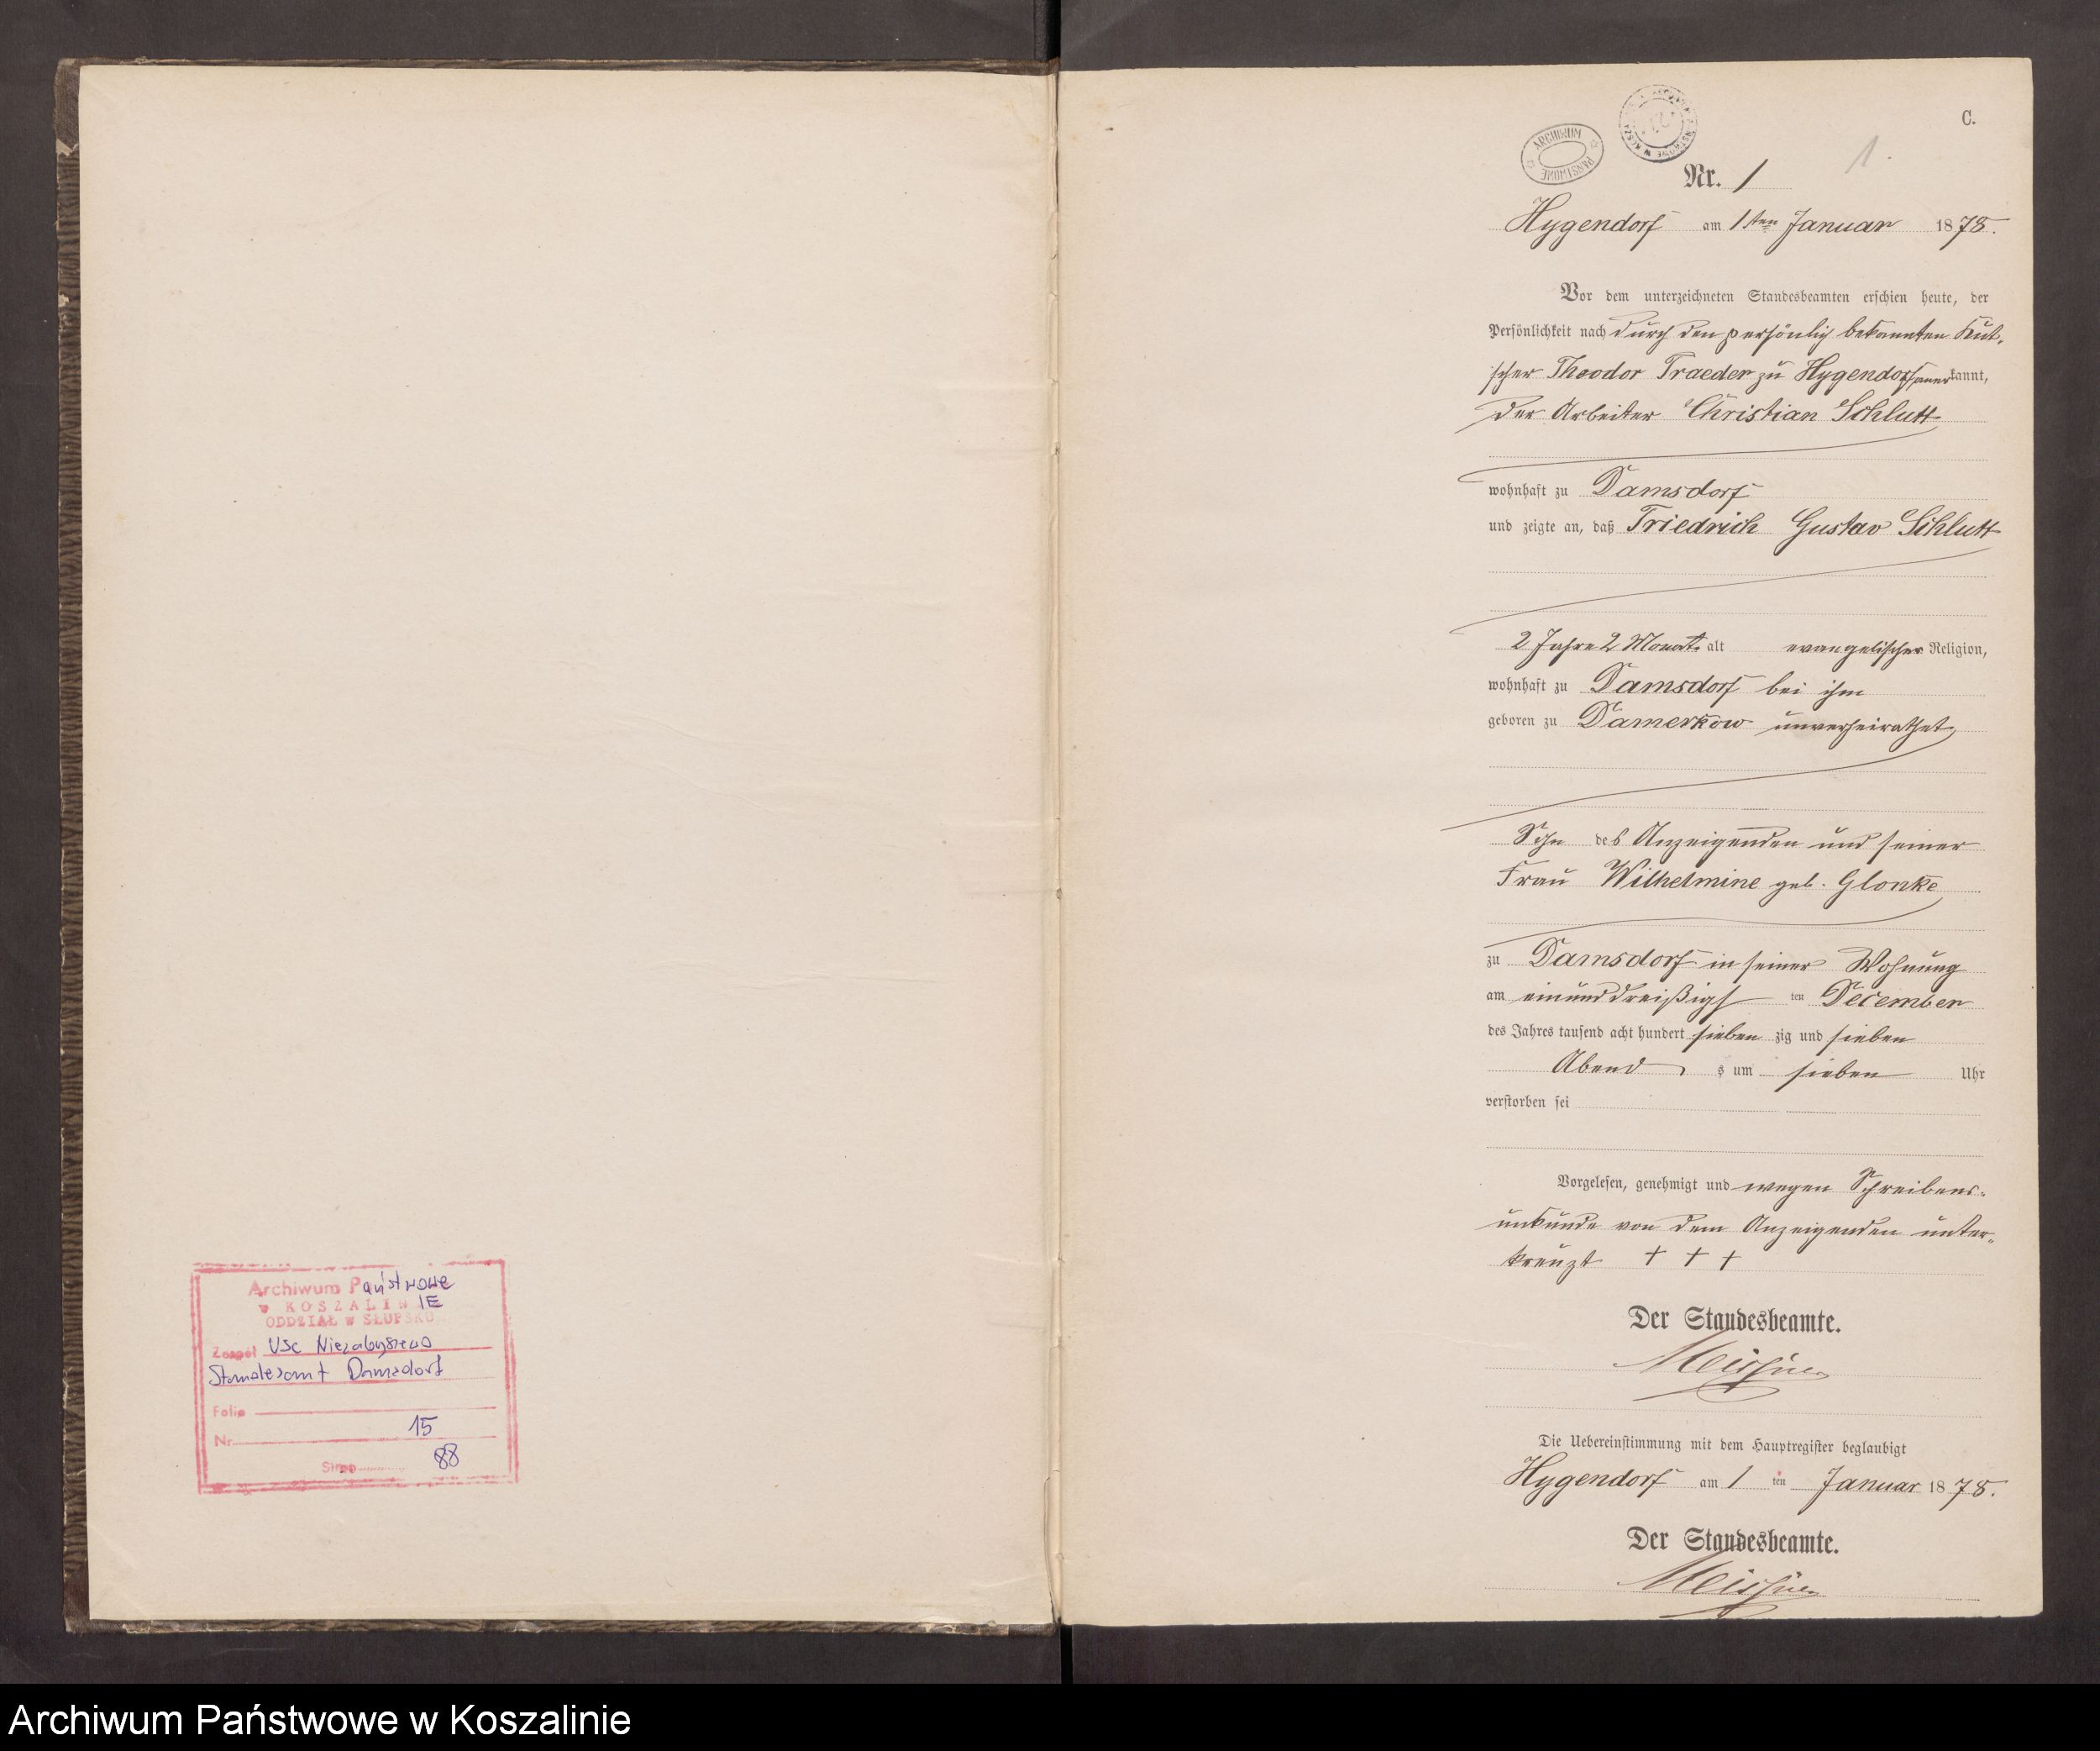 C.
ARCHIWUM PAŃSTWOWE
1.
Nr. 1
Hygendorf am 1ten Januar 1878.
Vor dem unterzeichneten Standesbeamten erschien heute, der
Persönlichkeit nach durch den persönlich bekannten Kut-
scher Theodor Traeder zu Hygendorf anerkannt,
der Arbeiter Christian Schlutt
wohnhaft zu Damsdorf
und zeigte an, daß Friedrich Gustav Schlutt
2 Jahre 2 Monate alt evangelischer Religion,
wohnhaft zu Damsdorf bei ihm
geboren zu Damerkow unverheirathet,
Sohn des Anzeigenden und seiner
Frau Wilhelmine geb. Glonke
zu Damsdorf in seiner Wohnung
am einunddreißigsten December
des Jahres tausend acht hundert siebenzig und sieben
Abends um sieben Uhr
verstorben sei
Vorgelesen, genehmigt und wegen Schreibens-
unkunde von dem Anzeigenden unter-
kreuzt + + +
Der Standesbeamte.
Die Uebereinstimmung mit dem Hauptregister beglaubigt
Hygendorf am 1ten Januar 1878.
Der Standesbeamte.
Archiwum Państwowe
w KOSZALINIE
ODDZIAŁ W SŁUPSKU
Zespół USC Niezabyszewo
Standesamt Damsdorf
Folio
Nr 15
Stron 88
Archiwum Państwowe w Koszalinie